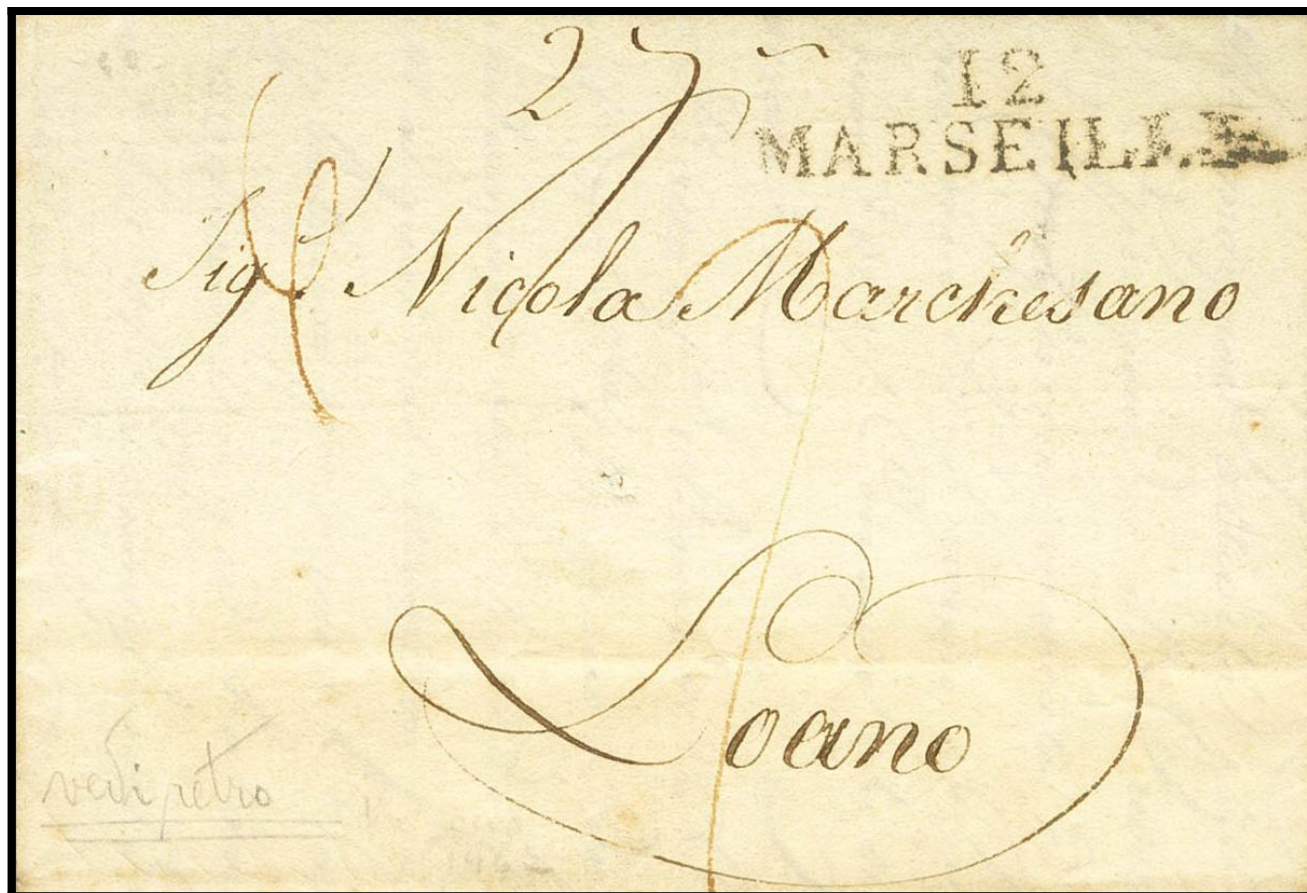 27
12
MARSEILLE
Sigr Nicola Marchesano
Loano
vedi retro